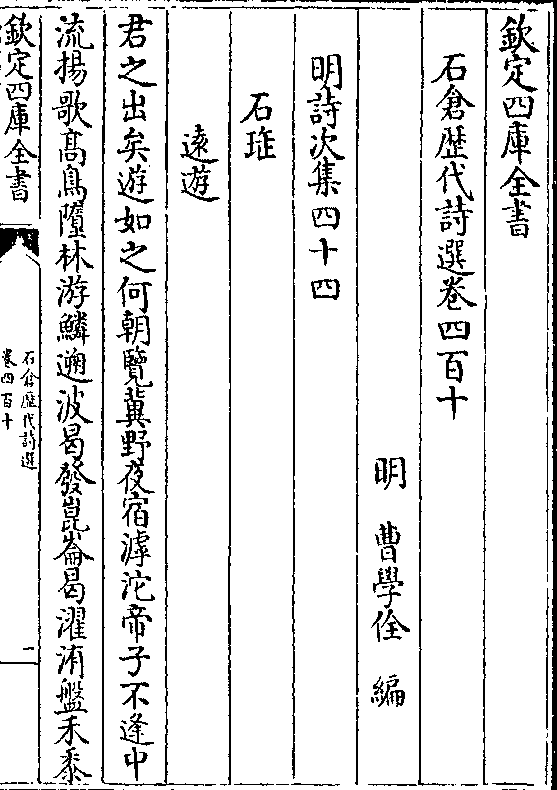 欽定四庫全書
石倉歴代詩選巻四百十
明 曹學佺 編
明詩次集四十四
石珤
逺遊
君之出矣遊如之何朝覽冀野夜宿滹沱帝子不逢中
流揚歌髙鳥墮林游鱗遡波曷發崑崙曷濯洧盤禾黍
欽定四庫全書
石倉歴代詩選
巻四百十
一